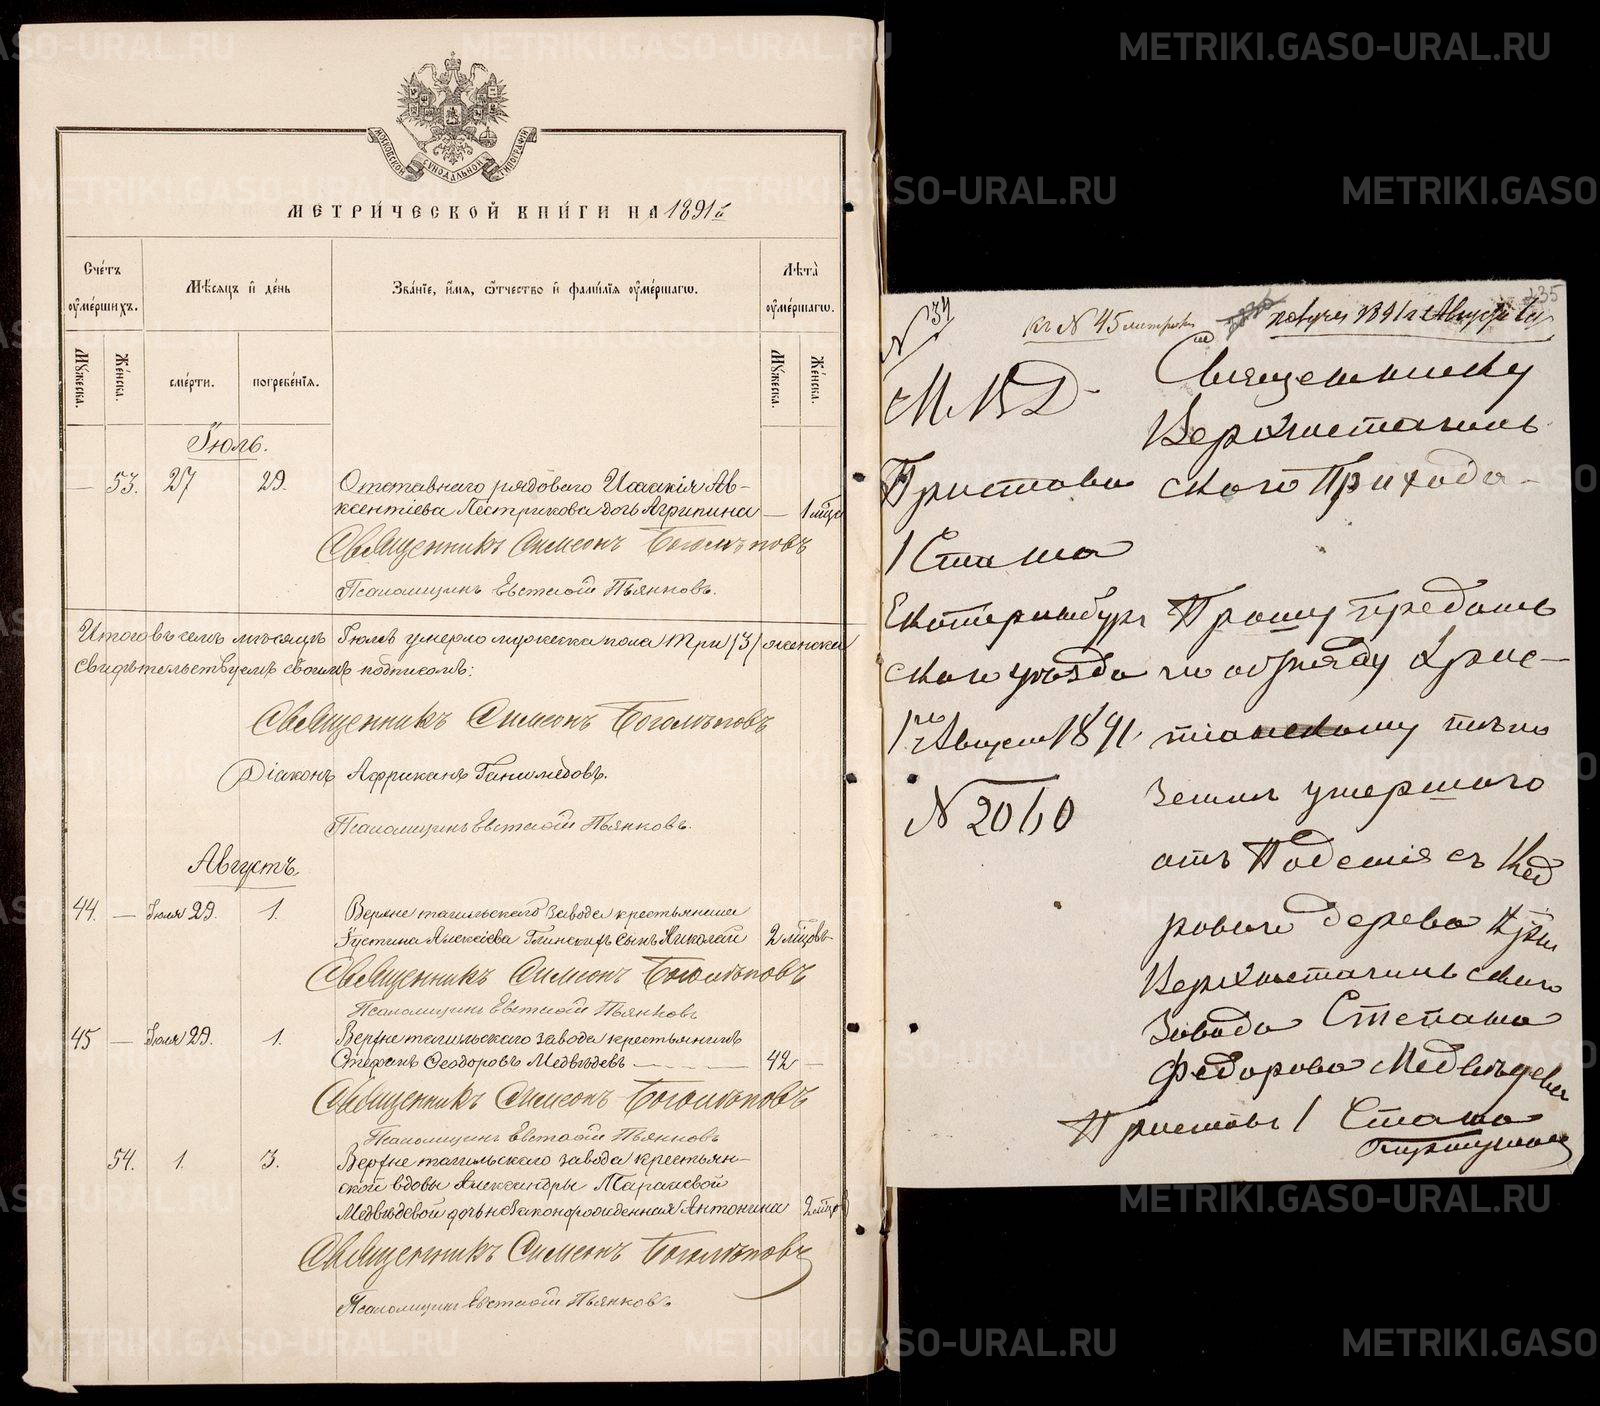 МОСКОВСКОЙ СѴНОДАЛЬНОЙ ТИПОГРАФІИ
МЕТРИ́ЧЕСКОЙ КНИ́ГИ НА 1891 й
Счéтъ ᲂу҆мéршихъ.
Мѣ́сяцъ и҆ дéнь
Звáнїе, и҆́мя, ѻ҆́тчество и҆ фамѝлїя ᲂу҆мéршагѡ.
Лѣ́та ᲂу҆мéршагѡ.
Мꙋ́жеска.
Жéнска.
смéрти.
погребéнїя.
Мꙋ́жеска.
Жéнска.
Іюль.
— 53. 27 29. Отставнаго рядоваго Исаакія Ав-
ксентіева Пестрикова дочь Агрипина — 1 мѣся
Священникъ Симеонъ Боголѣповъ
Псаломщикъ Евстафій Пьянковъ.
Итого въ семъ мѣсяцѣ Іюлѣ умерло мужеска пола три (3) женска
свидѣтельствуемъ своимъ подписомъ:
Священникъ Симеонъ Боголѣповъ
Діаконъ Африканъ Ганимедовъ.
Псаломщикъ Евстафій Пьянковъ.
Августъ.
44. — Іюля 29. 1. Верхне тагильскаго завода крестьянина
Густина Алексіева Глинскихъ сынъ Николай 2 мѣсяцовъ
Священникъ Симеонъ Боголѣповъ
Псаломщикъ Евстафій Пьянковъ
45 — Іюля 29. 1. Верхне тагильскаго завода крестьянинъ
Стефанъ Ѳеодоровъ Медвѣдевъ — 42 —
Священникъ Симеонъ Боголѣповъ
Псаломщикъ Евстафій Пьянковъ
54. 1. 3. Верхне тагильскаго завода крестьян-
ской вдовы Александры Тарасовой
Медвѣдевой дочь незаконорожденная Антонина 2 мѣся
Священникъ Симеонъ Боголѣповъ
Псаломщикъ Евстафій Пьянковъ.
135
№ 34
къ № 45 метрики
получ 1891 г Августа 1 д
М. В. Д.
Пристава
1 Стана
Екатеринбург
скаго уѣзда
1го Августа 1891
№ 2060
Священнику
Верхнетагиль
скаго Прихода
Прошу предать
по обряду Хрис-
тіанскому тѣло
земли умершаго
отъ Паденія съ Кед
роваго дерева Кре
Верхнетагильскаго
Завода Степана
Федорова Медвѣдева
Приставъ 1 Стана
METRIKI.GASO-URAL.RU